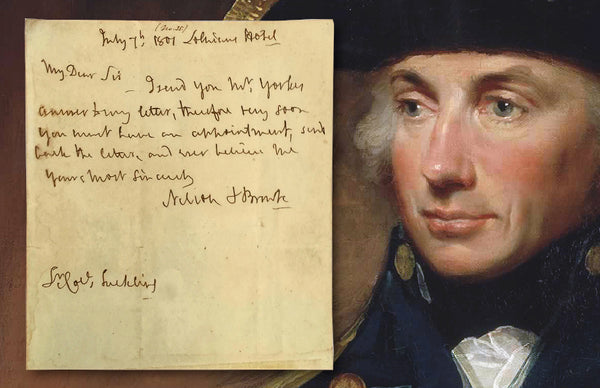 July 7th 1801 Lothians Hotel
My Dear Sir
I send you Mr. Yorkes
answer to my letter, therefore very soon
you must have an appointment, send
back the letter, and ever believe me
Yours most sincerely
Nelson & Bronte
Suckling